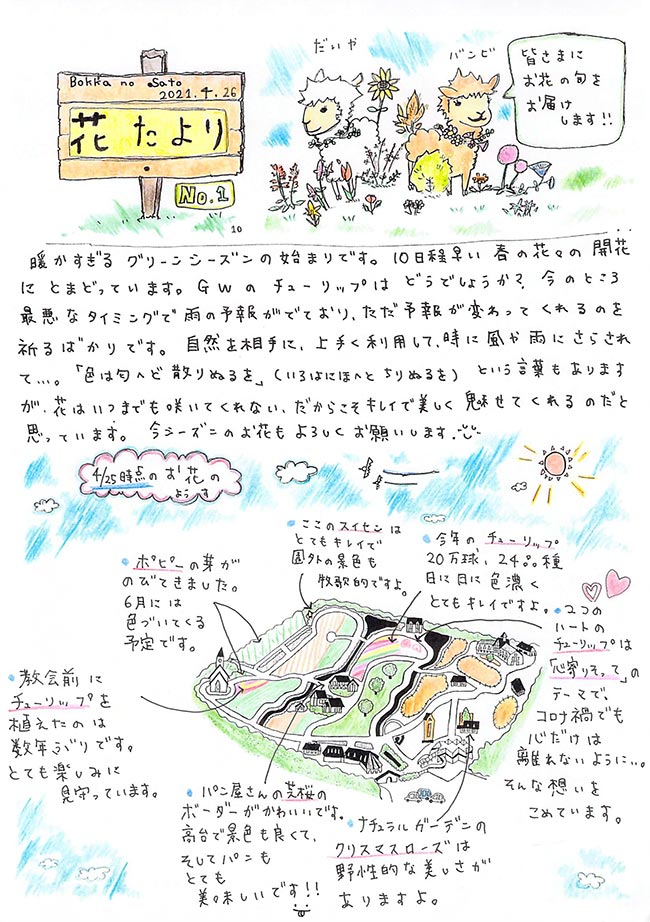 Bokka no Sato
2021.4.26
花たより
No.1
10
だいや
バンビ
皆さまに
お花の旬を
お届け
します!!
暖かすぎるグリーンシーズンの始まりです。10日程早い春の花々の開花
にとまどっています。GWのチューリップはどうでしょうか?今のところ
最悪なタイミングで雨の予報がでており、ただ予報が変わってくれるのを
祈るばかりです。自然を相手に、上手く利用して、時に風や雨にさらされ
て…。「色は匂へど散りぬるを」(いろはにほへとちりぬるを)という言葉もあります
が、花はいつまでも咲いてくれない、だからこそキレイで美しく魅せてくれるのだと
思っています。今シーズンのお花もよろしくお願いします。
4/25時点のお花の
ようす
・ここのスイセンは
とてもキレイで
園外の景色も
牧歌的ですよ。
・今年のチューリップ
20万球、240品種
日に日に色濃く
とてもキレイですよ。
・ポピーの芽が
のびてきました。
6月には
色づいてくる
予定です。
・2つの
ハートの
チューリップは
「心寄りそって」の
テーマで、
コロナ禍でも
心だけは
離れないように…。
そんな想いを
こめています。
・教会前に
チューリップを
植えたのは
数年ぶりです。
とても楽しみに
見守っています。
・パン屋さんの芝桜の
ボーダーがかわいいです。
高台で景色も良くて、
そしてパンも
とても
美味しいです!!
・ナチュラルガーデンの
クリスマスローズは
野性的な美しさが
ありますよ。